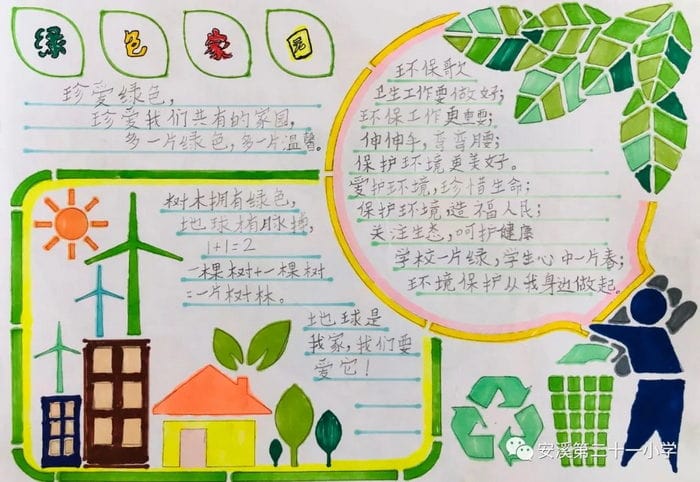 绿色家园
珍爱绿色,
珍爱我们共有的家园,
多一片绿色,多一片温馨。
环保歌
卫生工作要做好;
环保工作更重要;
伸伸手,弯弯腰;
保护环境更美好。
爱护环境,珍惜生命;
保护环境,造福人民;
关注生态,呵护健康
学校一片绿,学生心中一片春;
环境保护从我身边做起。
树木拥有绿色,
地球才有脉搏,
1+1=2
一棵树+一棵树
=一片树林。
地球是
我家,我们要
爱它!
安溪第三十一小学